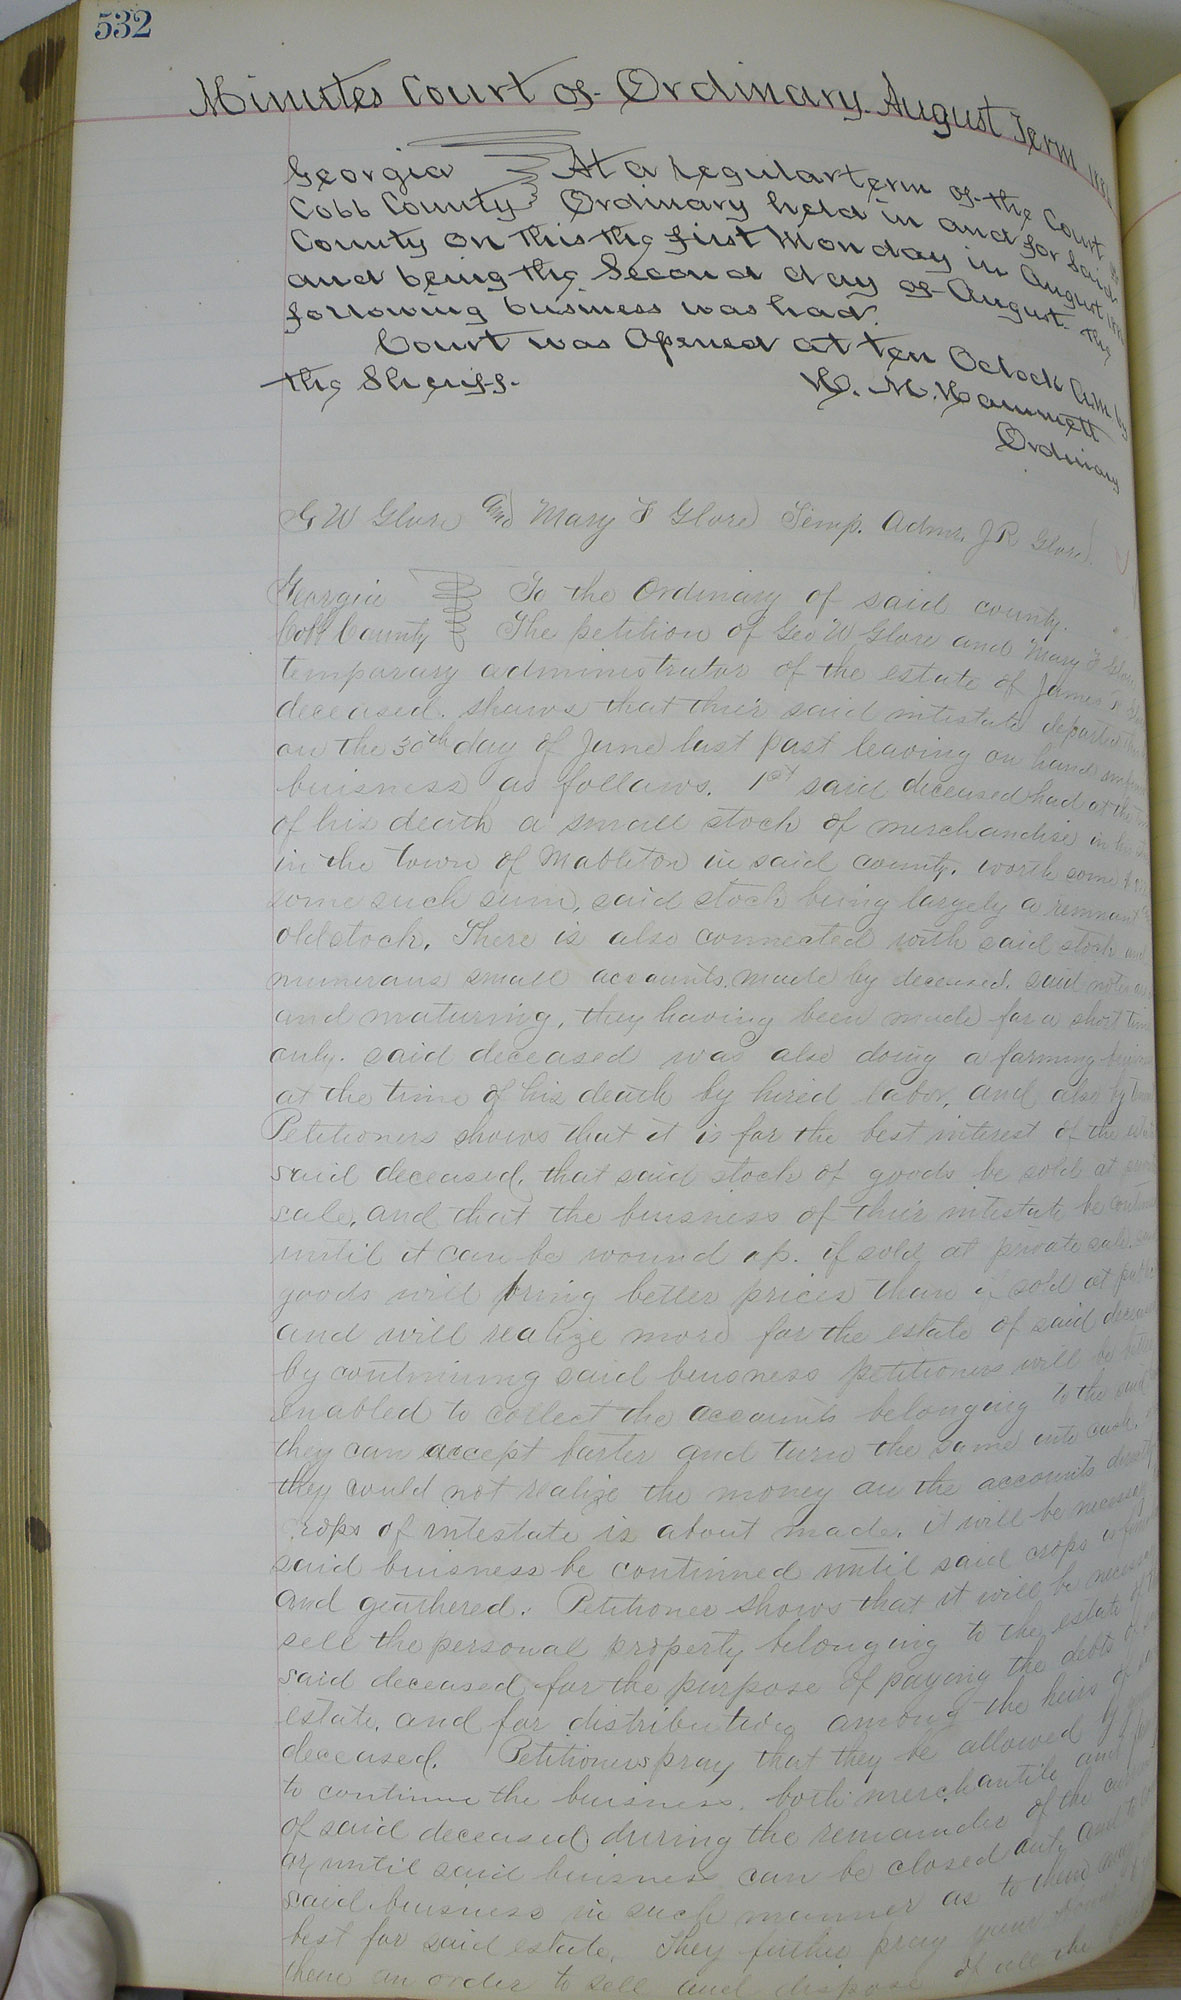 532
Minutes Court of Ordinary. August Term
Georgia At a regular term of the Court
Cobb County Ordinary held in and for Said
County on this the first Monday in August
and being the Second day of August. the
following business was had.
Court was Opened at ten Oclock A.M. by
the Sheriff.
H. M. Hammett
Ordinary
G W Glore and Mary F Glore Temp. Admr. J R Glore
Georgia To the Ordinary of said county.
Cobb County The petition of Geo W Glore and Mary F
temporary administrator of the estate of James
deceased. shows that their said intestate departed
on the 30th day of June last past leaving on hand
buisness as follows. 1st said deceased had at the
of his death a small stock of merchandise in his
in the town of Mableton in said county. worth some
some such sum, said stock being largely a remnant
old stock. There is also connected with said stock
numerous small accounts, made by deceased. said notes
and maturing, they having been made for a short time
only. said deceased was also doing a farming
at the time of his death by hired labor, and also by
Petitioners shows that it is for the best interest of the
said deceased, that said stock of goods be sold at
sale, and that the buisness of their intestate be
until it can be wound up. if sold at private sale,
goods will bring better prices than if sold at
and will realize more for the estate of said
by continuing said buisness petitioners will be
enabled to collect the accounts belonging to the said
they can accept barter and turn the same into cash.
they could not realize the money on the accounts
crops of intestate is about made. it will be
said buisness be continued until said crops
and geathered. Petitioner shows that it will be
sell the personal property belonging to the estate of
said deceased, for the purpose of paying the debts of
estate, and for distributing among the heirs of
deceased. Petitioners pray that they be allowed
to continue the buisness, both merchantile and
of said deceased during the remainder of the
or until said buisness can be closed out, and
said buisness in such manner as to them
best for said estate. They further pray your
them an order to sell and dispose of all the